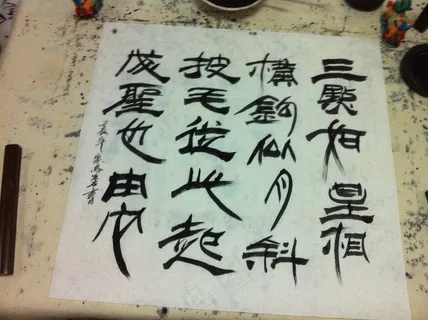 三點如星相
橫鉤似月斜
披毛從此起
成聖也由